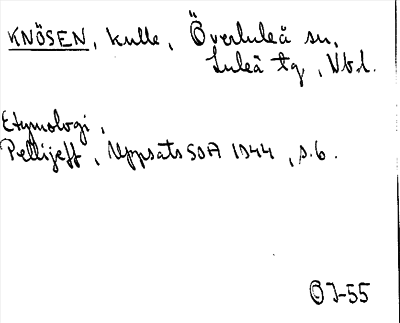 KNÖSEN, kulle, Överluleå sn,
Luleå tg, Nb.l.
Etymologi,
Pellijeff, Uppsats SOA 1944, s.6.
ÖJ-55